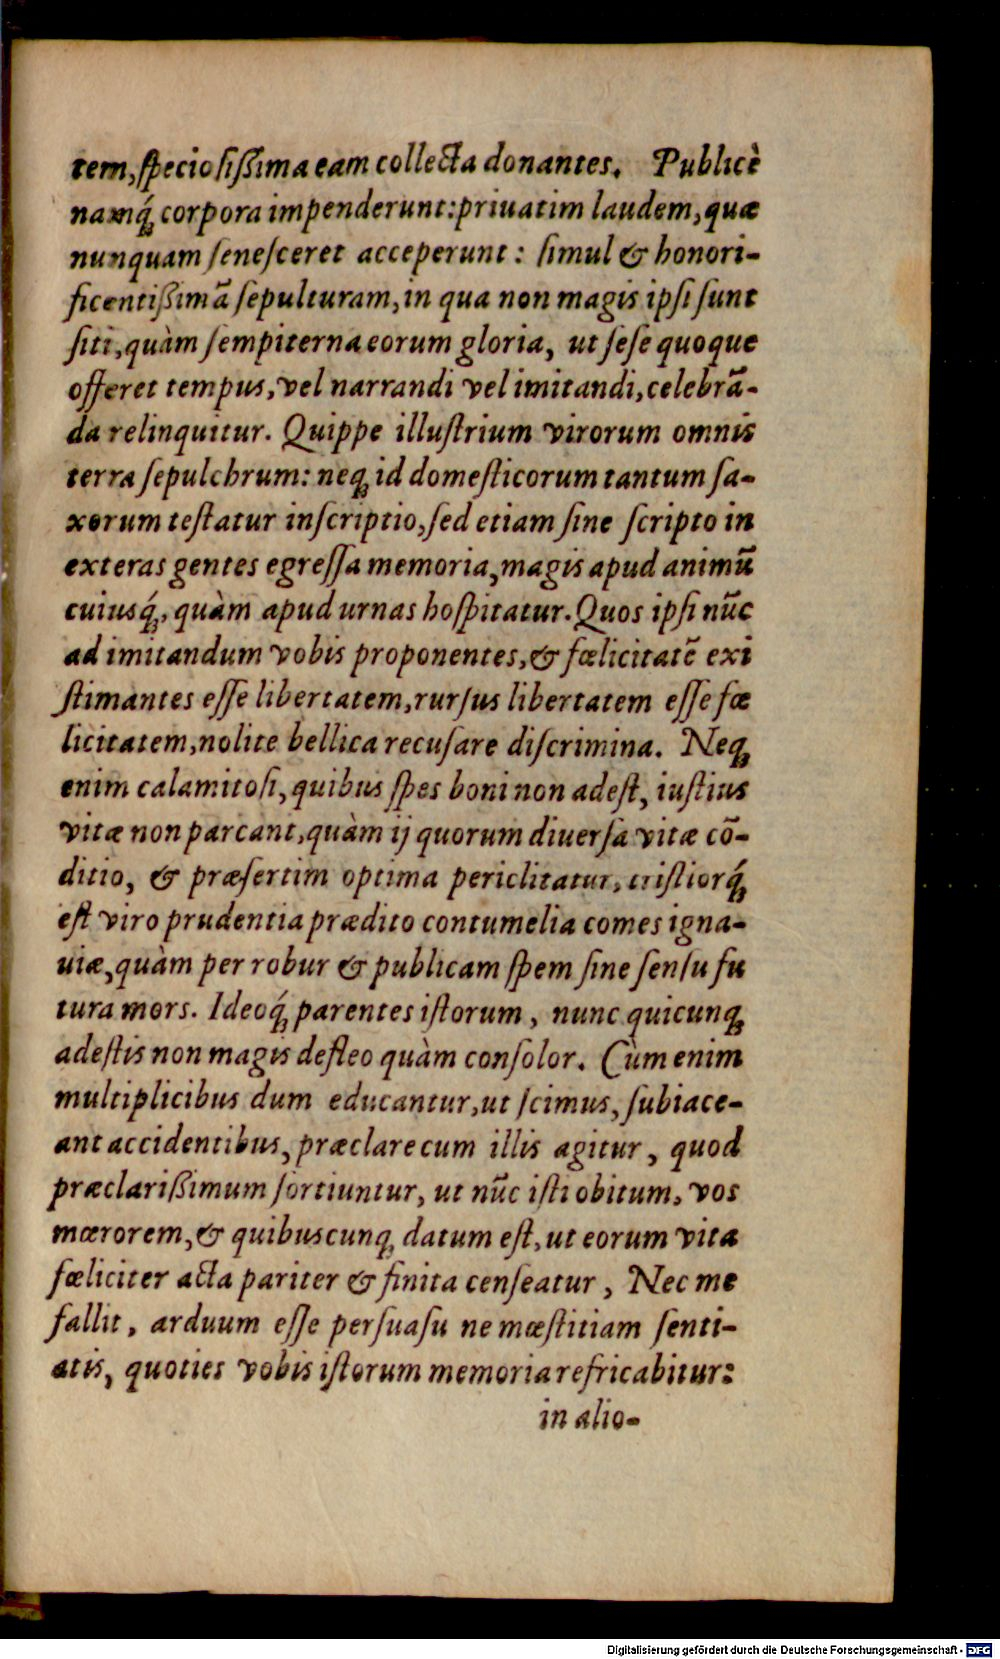 tem, ſpecioſiſſima eam collecta donantes. Publicè
namq́; corpora impenderunt: priuatim laudem, quæ
nunquam ſeneſceret acceperunt: ſimul & honori-
ficentiſſimā ſepulturam, in qua non magis ipſi ſunt
ſiti, quàm ſempiterna eorum gloria, ut ſeſe quoque
offeret tempus, vel narrandi vel imitandi, celebrā-
da relinquitur. Quippe illuſtrium virorum omnis
terra ſepulchrum: neq; id domeſticorum tantum ſa-
xorum teſtatur inſcriptio, ſed etiam ſine ſcripto in
exteras gentes egreſſa memoria, magis apud animū
cuiusq́;, quàm apud urnas hoſpitatur. Quos ipſi nūc
ad imitandum vobis proponentes, & fœlicitatē exi
ſtimantes eſſe libertatem, rurſus libertatem eſſe fœ
licitatem, nolite bellica recuſare diſcrimina. Neq;
enim calamitoſi, quibus ſpes boni non adeſt, iuſtius
vitæ non parcant, quàm ij quorum diuerſa vitæ cō-
ditio, & præſertim optima periclitatur, triſtiorq́;
eſt viro prudentia prædito contumelia comes igna-
uiæ, quàm per robur & publicam ſpem ſine ſenſu fu
tura mors. Ideoq́; parentes iſtorum, nunc quicunq;
adeſtis non magis defleo quàm conſolor. Cùm enim
multiplicibus dum educantur, ut ſcimus, ſubiace-
ant accidentibus, præclare cum illis agitur, quod
præclariſſimum ſortiuntur, ut nūc iſti obitum, vos
mœrorem, & quibuscunq; datum eſt, ut eorum vita
fœliciter acta pariter & finita cenſeatur, Nec me
fallit, arduum eſſe perſuaſu ne mœſtitiam ſenti-
atis, quoties vobis iſtorum memoria refricabitur:
in alio-
Digitalisierung gefördert durch die Deutsche Forschungsgemeinschaft - DFG